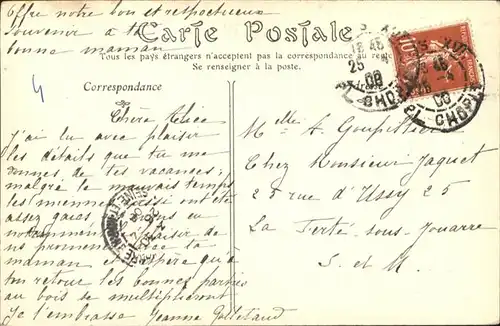 Offre notre bon et respectueux
souvenir à ta
bonne maman
Carte Postale
Tous les pays étrangers n'acceptent pas la correspondance au
Se renseigner à la poste.
Correspondance
Chère Alice
J'ai lu avec plaisir
les détails que tu me
donnes de tes vacances;
malgré le mauvais temps
les miennes aussi ont été
assez
notamment
promener avec la
maman et j'espère qu'à
ton retour les bonnes parties
au bois se multiplieront
Je t'embrasse Jeanne
4
Melle A. Goupillier
Chez Monsieur Jaquet
25 rue d'Ussy 25
La Ferté-sous-Jouarre
S. et M.
PL. CHOPIN